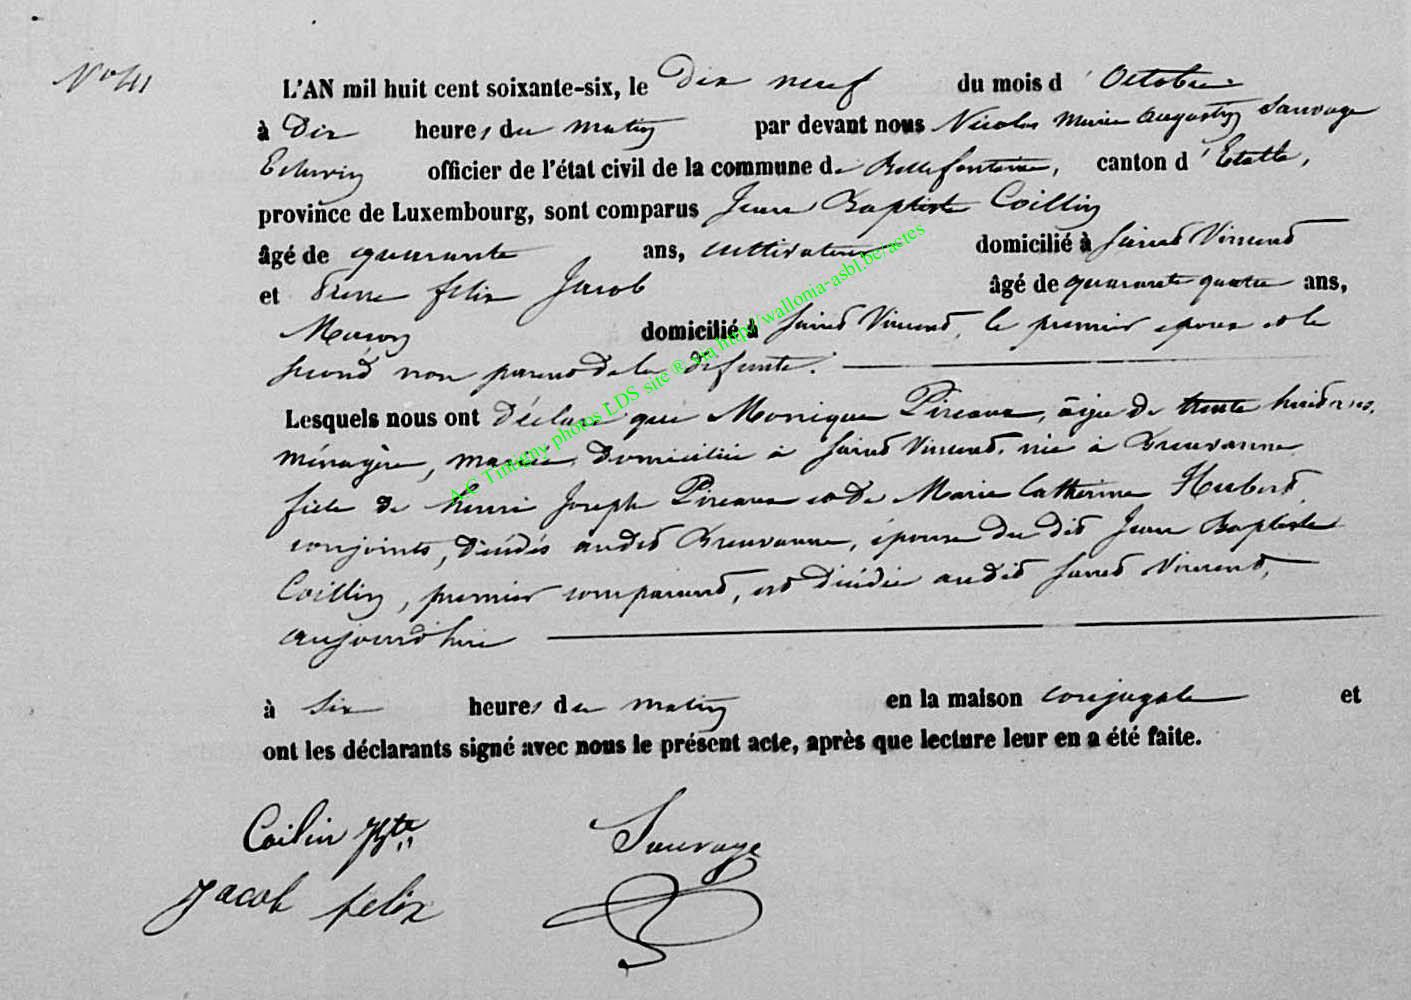 N° 41
L'AN mil huit cent soixante-six, le Dix neuf du mois d'Octobre
à Dix heures du matin par devant nous Nicolas Marie Augustin Sauvage
Echevin officier de l'état civil de la commune de Bellefontaine, canton d'Etalle,
province de Luxembourg, sont comparus Jean Baptiste Coillin
âgé de quarante ans, cultivateur domicilié à Saint Vincent
et Pierre felix Jacob âgé de quarante quatre ans,
Maçon domicilié à Saint Vincent, le premier epoux et le
second non parent de la défunte.
Lesquels nous ont Déclaré que Monique Pireaux, âgée de trente huit ans,
ménagère, mariée, Domiciliée à Saint Vincent, née à Breuvanne
fille de henri Joseph Pireaux et de Marie Catherine Hubert,
conjoints, Décédés audit Breuvanne, épouse du dit Jean Baptiste
Coillin, premier comparant, est Décédée audit Saint Vincent,
aujourd'hui
à Six heures du matin en la maison conjugale et
ont les déclarants signé avec nous le présent acte, après que lecture leur en a été faite.
Coilin Jbte Sauvage
Jacob felix
A.C Tintigny photos LDS site ® via http://wallonia-asbl.be/actes